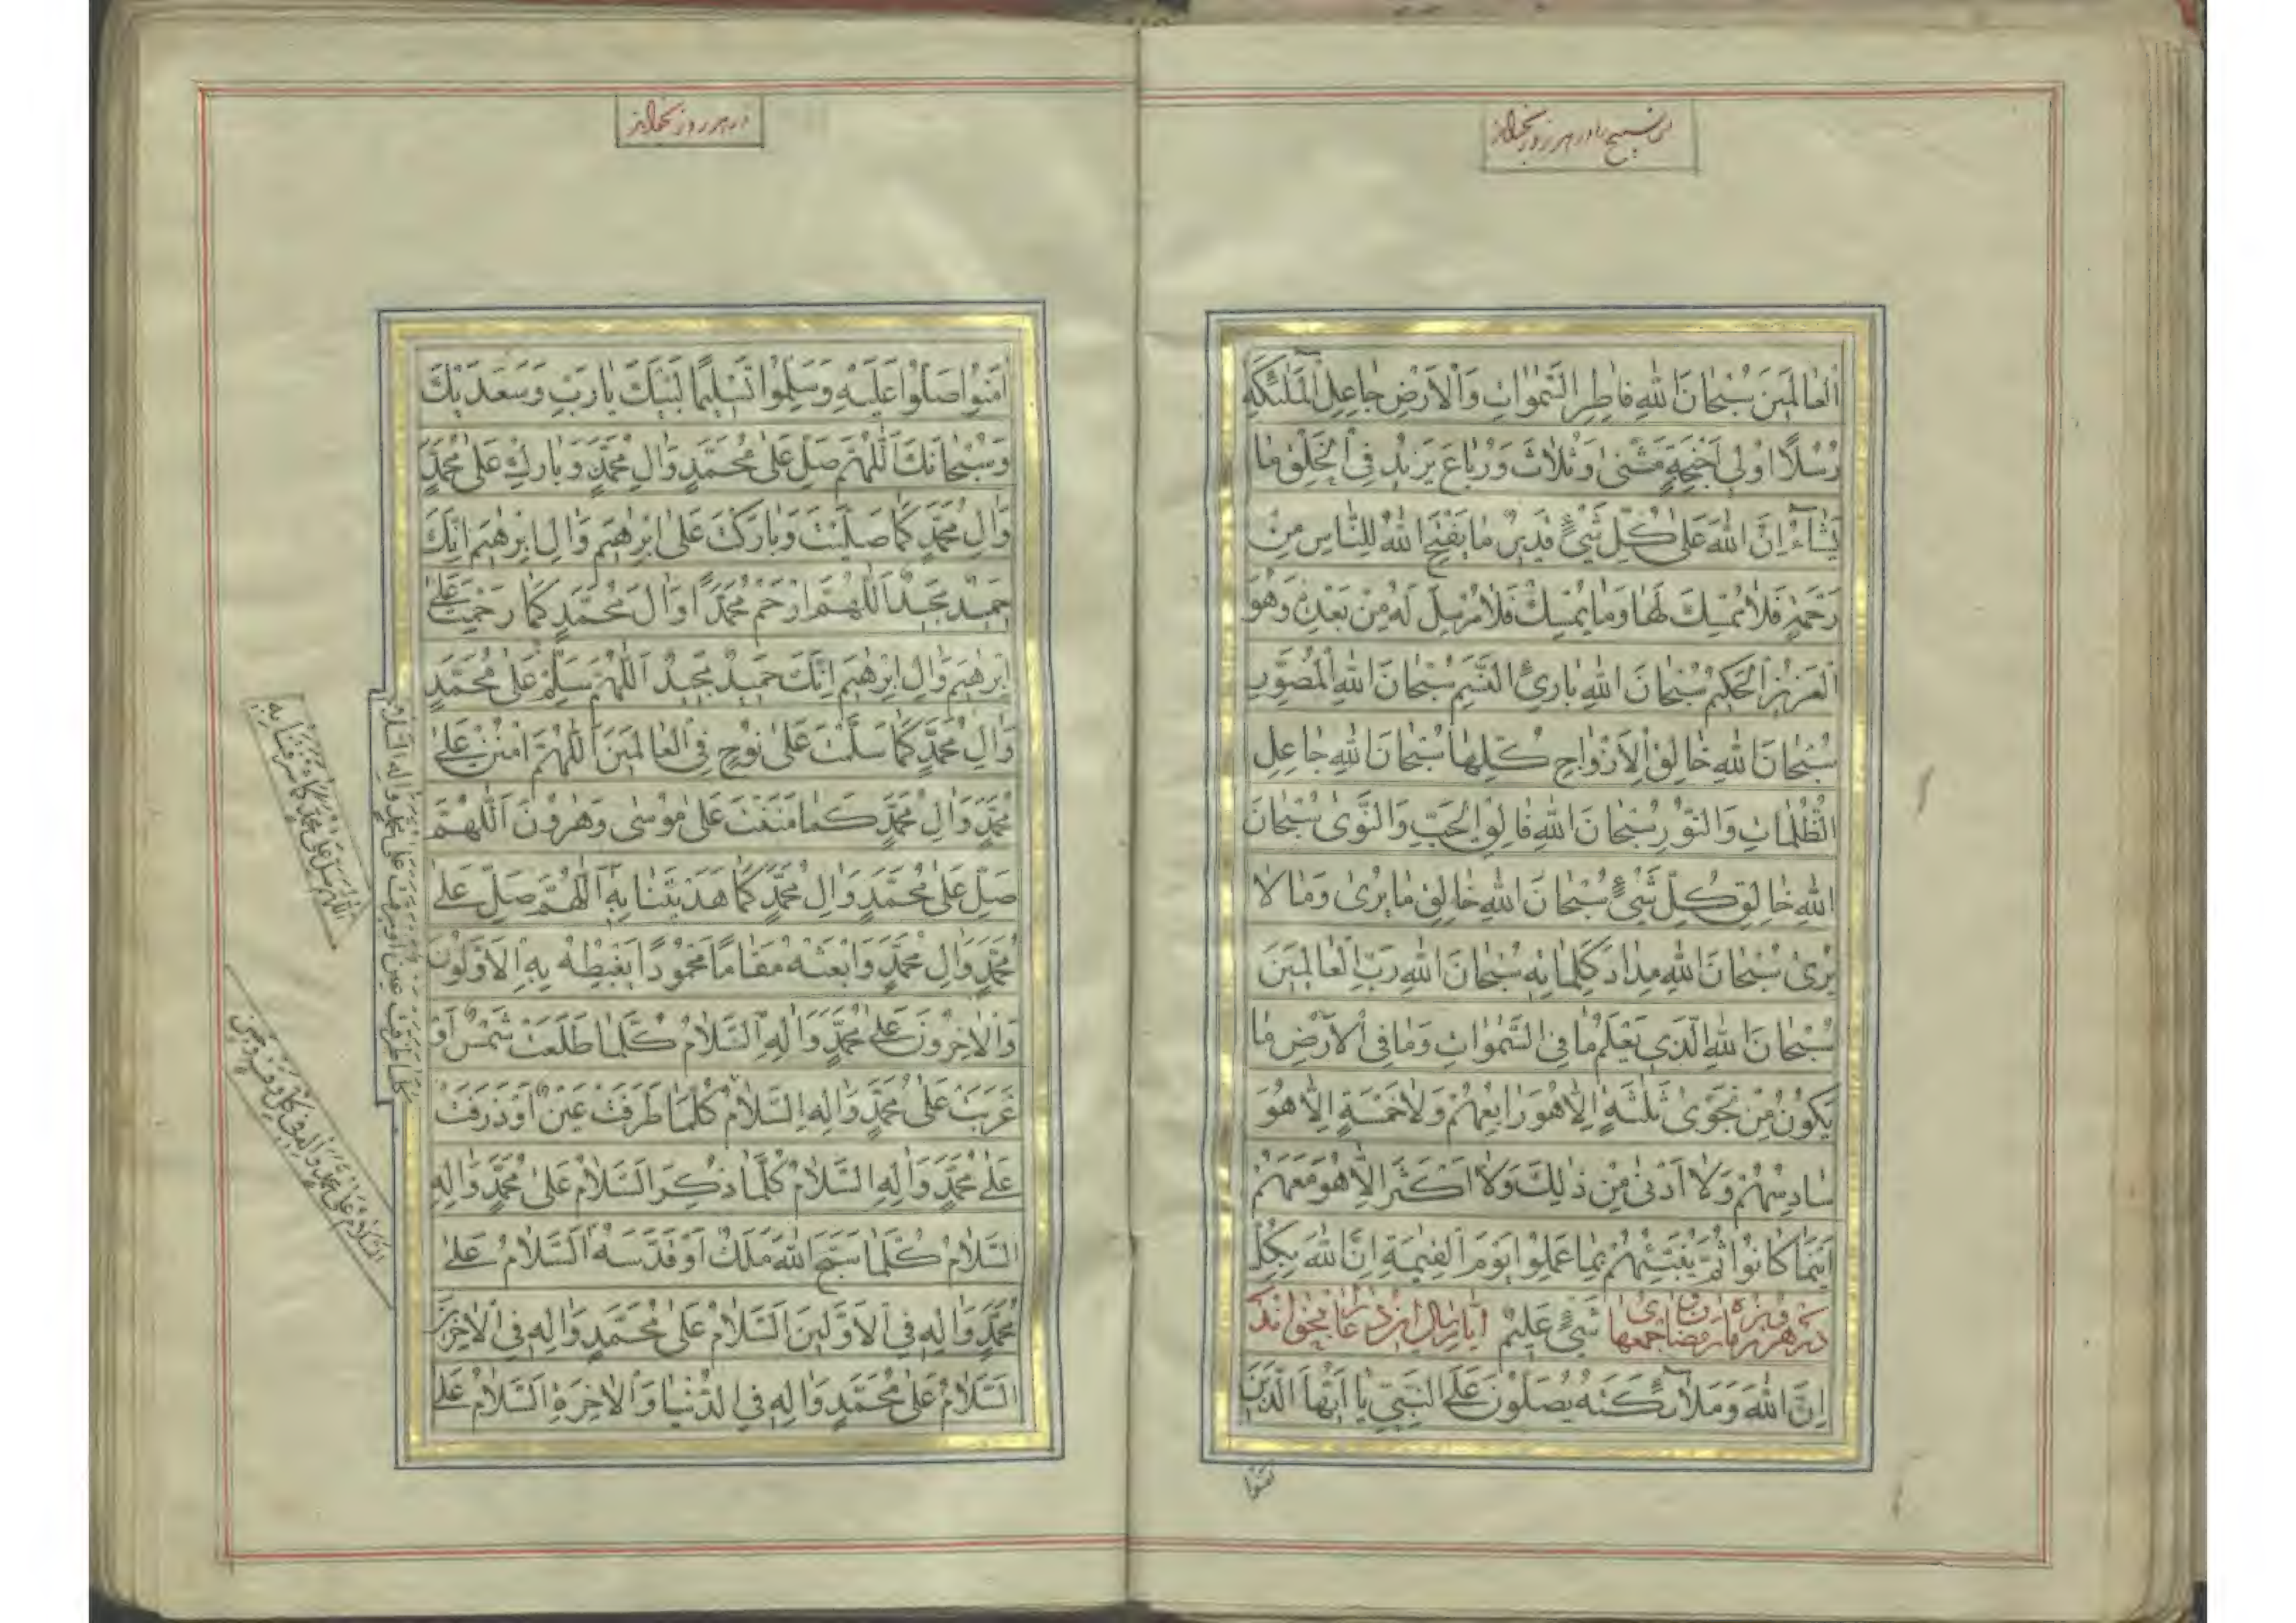 این تسبیح را در هر روز بخواند
العالمین سُبْحانَ اللهِ فاطِرِ السَّمٰواتِ وَالْاَرْضِ جاعِلِ الْمَلٰئِکَةِ
رُسُلًا اُولی اَجْنِحَةٍ مَثْنیٰ وَثُلاثَ وَرُباعَ یَزیدُ فِی الْخَلْقِ ما
یَشآءُ اِنَّ اللهَ عَلیٰ کُلِّ شَیْءٍ قَدیرٌ ما یَفْتَحِ اللهُ لِلنّاسِ مِنْ
رَحْمَةٍ فَلا مُمْسِكَ لَها وَما یُمْسِكْ فَلا مُرْسِلَ لَهُ مِنْ بَعْدِهِ وَهُوَ
الْعَزیزُ الْحَکیمُ سُبْحانَ اللهِ بارِئِ النَّسَمِ سُبْحانَ اللهِ الْمُصَوِّرِ
سُبْحانَ اللهِ خالِقِ الْاَزْواجِ کُلِّها سُبْحانَ اللهِ جاعِلِ
الظُّلُماتِ وَالنُّورِ سُبْحانَ اللهِ فالِقِ الْحَبِّ وَالنَّویٰ سُبْحانَ
اللهِ خالِقِ کُلِّ شَیْءٍ سُبْحانَ اللهِ خالِقِ ما یُریٰ وَما لا
یُریٰ سُبْحانَ اللهِ مِدادَ کَلِماتِهِ سُبْحانَ اللهِ رَبِّ الْعالَمینَ
سُبْحانَ اللهِ الَّذی یَعْلَمُ ما فِی السَّمٰواتِ وَما فِی الْاَرْضِ ما
یَکُونُ مِنْ نَجْویٰ ثَلٰثَةٍ اِلّا هُوَ رابِعُهُمْ وَلا خَمْسَةٍ اِلّا هُوَ
سادِسُهُمْ وَلا اَدْنیٰ مِنْ ذٰلِكَ وَلا اَکْثَرَ اِلّا هُوَ مَعَهُمْ
اَیْنَما کانُوا ثُمَّ یُنَبِّئُهُمْ بِما عَمِلُوا یَوْمَ الْقِیٰمَةِ اِنَّ اللهَ بِکُلِّ
شَیْءٍ عَلیمٌ
اِنَّ اللهَ وَمَلآئِکَتَهُ یُصَلُّونَ عَلَی النَّبِیِّ یا اَیُّهَا الَّذینَ
آمنوا
در هر روز بخواند
امَنُوا صَلُّوا عَلَیْهِ وَسَلِّمُوا تَسْلیمًا لَبَّیْكَ یا رَبِّ وَسَعْدَیْكَ
وَسُبْحانَكَ اَللّٰهُمَّ صَلِّ عَلیٰ مُحَمَّدٍ وَالِ مُحَمَّدٍ وَبارِكْ عَلیٰ مُحَمَّدٍ
وَالِ مُحَمَّدٍ کَما صَلَّیْتَ وَبارَکْتَ عَلیٰ اِبْرٰهیمَ وَالِ اِبْرٰهیمَ اِنَّكَ
حَمیدٌ مَجیدٌ اَللّٰهُمَّ ارْحَمْ مُحَمَّدًا وَالَ مُحَمَّدٍ کَما رَحِمْتَ عَلیٰ
اِبْرٰهیمَ وَالِ اِبْرٰهیمَ اِنَّكَ حَمیدٌ مَجیدٌ اَللّٰهُمَّ سَلِّمْ عَلیٰ مُحَمَّدٍ
وَالِ مُحَمَّدٍ کَما سَلَّمْتَ عَلیٰ نُوحٍ فِی الْعالَمینَ اَللّٰهُمَّ امْنُنْ عَلیٰ
مُحَمَّدٍ وَالِ مُحَمَّدٍ کَما مَنَنْتَ عَلیٰ مُوسیٰ وَهٰرُونَ اَللّٰهُمَّ
صَلِّ عَلیٰ مُحَمَّدٍ وَالِ مُحَمَّدٍ کَما هَدَیْتَنا بِهِ اَللّٰهُمَّ صَلِّ عَلیٰ
مُحَمَّدٍ وَالِ مُحَمَّدٍ وَابْعَثْهُ مَقامًا مَحْمُودًا یَغْبِطُهُ بِهِ الْاَوَّلُونَ
وَالْاخِرُونَ عَلیٰ مُحَمَّدٍ وَالِهِ السَّلامُ کُلَّما طَلَعَتْ شَمْسٌ اَوْ
غَرَبَتْ عَلیٰ مُحَمَّدٍ وَالِهِ السَّلامُ کُلَّما طَرَفَتْ عَیْنٌ اَوْ ذَرَفَتْ
عَلیٰ مُحَمَّدٍ وَالِهِ السَّلامُ کُلَّما ذُکِرَ السَّلامُ عَلیٰ مُحَمَّدٍ وَالِهِ
السَّلامُ کُلَّما سَبَّحَ اللهَ مَلَكٌ اَوْ قَدَّسَهُ اَلسَّلامُ عَلیٰ
مُحَمَّدٍ وَالِهِ فِی الْاَوَّلینَ اَلسَّلامُ عَلیٰ مُحَمَّدٍ وَالِهِ فِی الْاخِرینَ
اَلسَّلامُ عَلیٰ مُحَمَّدٍ وَالِهِ فِی الدُّنْیا وَالْاخِرَةِ اَلسَّلامُ عَلیٰ
کلما طرفت عین او برقت علی محمد واله السلام
اللهم صل علی محمد کما شرفتنا به